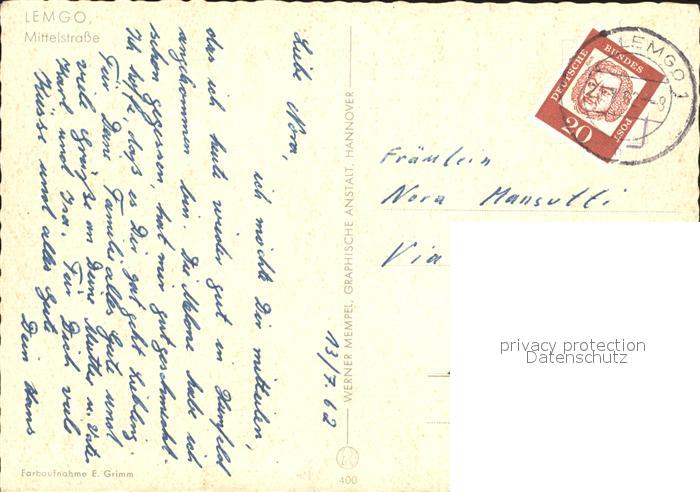 LEMGO,
Mittelstraße
Liebe Nora,
ich möchte Dir mitteilen,
das ich heute wieder gut in
angekommen bin. Die Melone habe ich
schon gegessen, hat mir gut geschmeckt.
Ich hoffe, daß es Dir gut geht Liebling.
Für Deine Familie alles Gute und
viele Grüße an Deine Mutter u. Vater
und Ira. Für Dich viele
Küsse und alles Gute
Dein Hans
13/7.62
Farbaufnahme E. Grimm
WERNER MEMPEL, GRAPHISCHE ANSTALT, HANNOVER
400
DEUTSCHE BUNDESPOST
20
LEMGO 1
Fräulein
Nora Mansutti
Via
privacy protection
Datenschutz